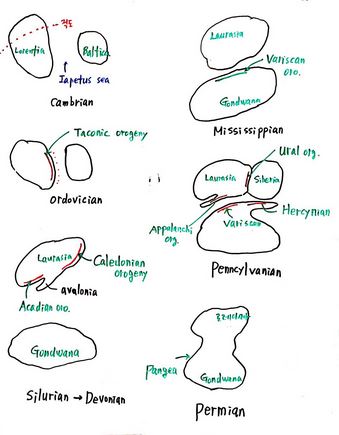 적도
Lorentia
Baltica
Iapetus sea
Cambrian
Taconic orogeny
Ordovician
Laurasia
Caledonian
orogeny
avalonia
Acadian oro.
Gondwana
Silurian → Devonian
Laurasia
Variscan
oro.
Gondwana
Mississippian
Ural org.
Laurasia
Siberia
Hercynian
Appalanchi
org.
Variscan
Penncylvanian
Pangea
Gondwana
Permian